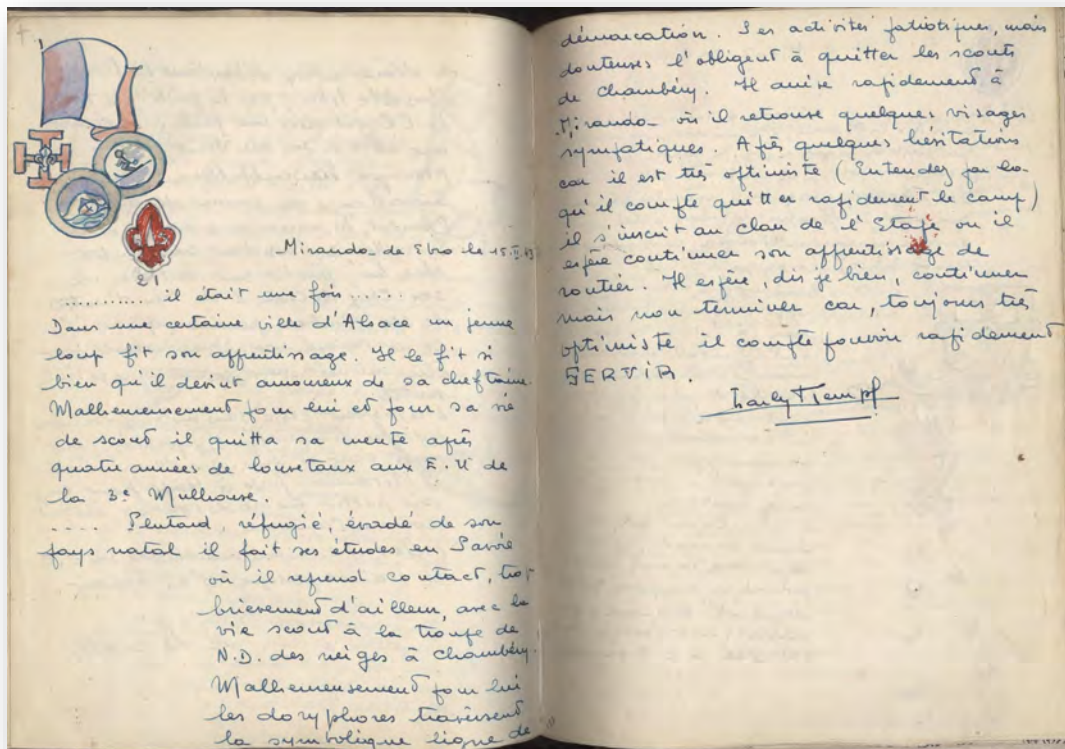 Miranda de Ebro le 15.II.43
21
............ il était une fois......
Dans une certaine ville d'Alsace un jeune
loup fit son apprentissage. Il le fit si
bien qu'il devint amoureux de sa cheftaine.
Malheureusement pour lui et pour sa vie
de scout il quitta sa meute après
quatre années de louvetaux aux E.U de
la 3e Mulhouse.
.... Plutard, réfugié, évadé de son
pays natal il fait ses études en Savoie
où il reprend contact, trop
brièvement d'ailleur, avec la
vie scout à la troupe de
N.D. des neiges à Chambéry.
Malheureusement pour lui
les doryphores traversent
la symbolique ligne de
démarcation. Ses activités patriotiques, mais
douteuses l'obligent à quitter les scouts
de Chambéry. Il arrive rapidement à
Miranda où il retrouve quelques visages
sympatiques. Après quelques hésitations
car il est très optimiste (Entendez par la
qu'il compte quitter rapidement le camp)
il s'inscrit au clan de l'Etape ou il
espère continuer son apprentissage de
routier. Il espère, dis je bien, continuer
mais non terminer car, toujours très
optimiste il compte pouvoir rapidement
SERVIR.